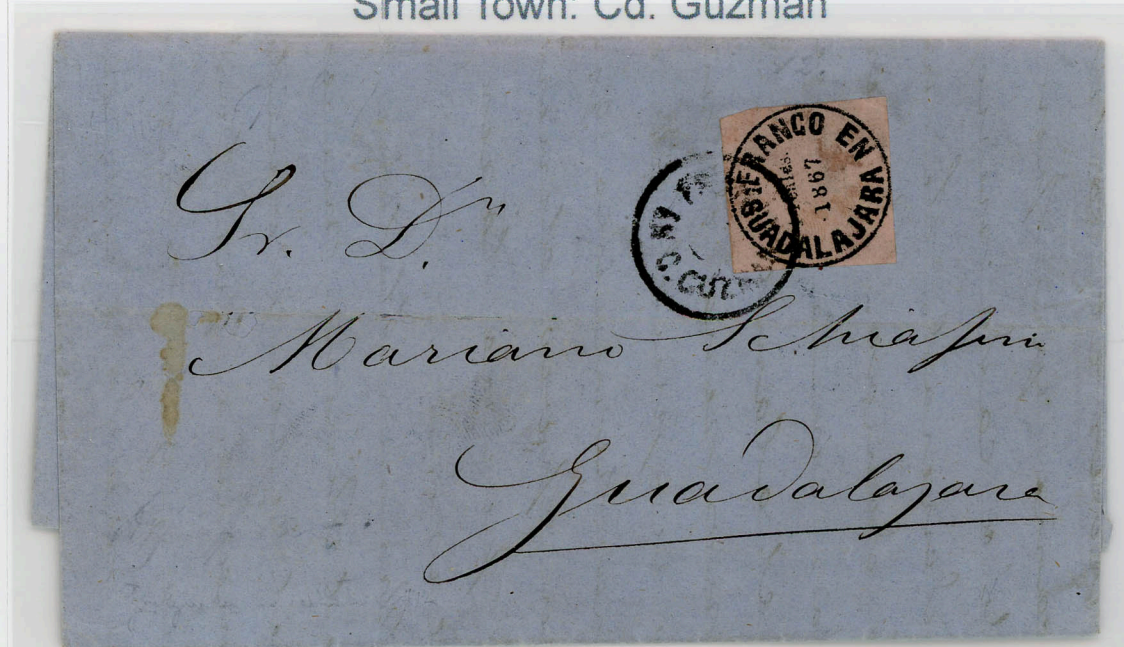 Small Town: Cd. Guzman
FRANCO EN
GUADALAJARA
1867
Sr. Dn
Mariano Schiafini
Guadalajara